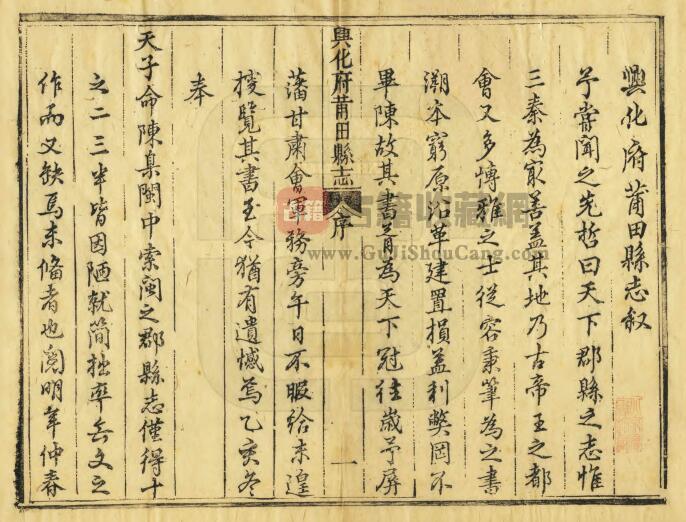 興化府莆田縣志叙
予嘗聞之先哲曰天下郡縣之志惟
三秦為最善盖其地乃古帝王之都
會又多博雅之士從容秉筆為之書
溯本窮原沿革建置損益利獘罔不
畢陳故其書首為天下冠往歲予屏
藩甘肅會軍務旁午日不暇給未遑
披覽其書至今猶有遺憾焉乙亥冬
奉
天子命陳臬閩中索閩之郡縣志僅得十
之二三半皆因陋就簡拙率無文之
作而又缺焉未偹者也閱明年仲春
興化府莆田縣志
序
一
古籍收藏網
www.GuJiShouCang.com